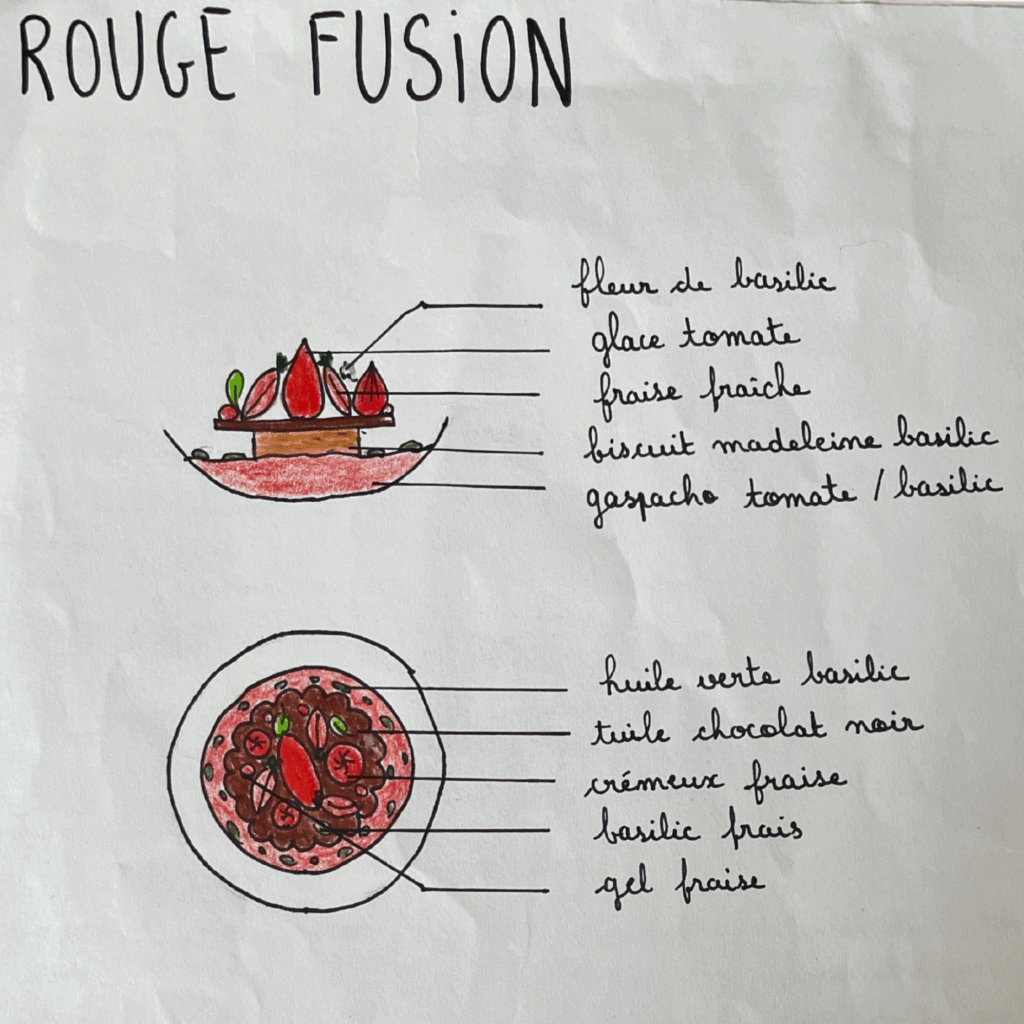 ROUGE FUSION
fleur de basilic
glace tomate
fraise fraîche
biscuit madeleine basilic
gaspacho tomate / basilic
huile verte basilic
tuile chocolat noir
crémeux fraise
basilic frais
gel fraise